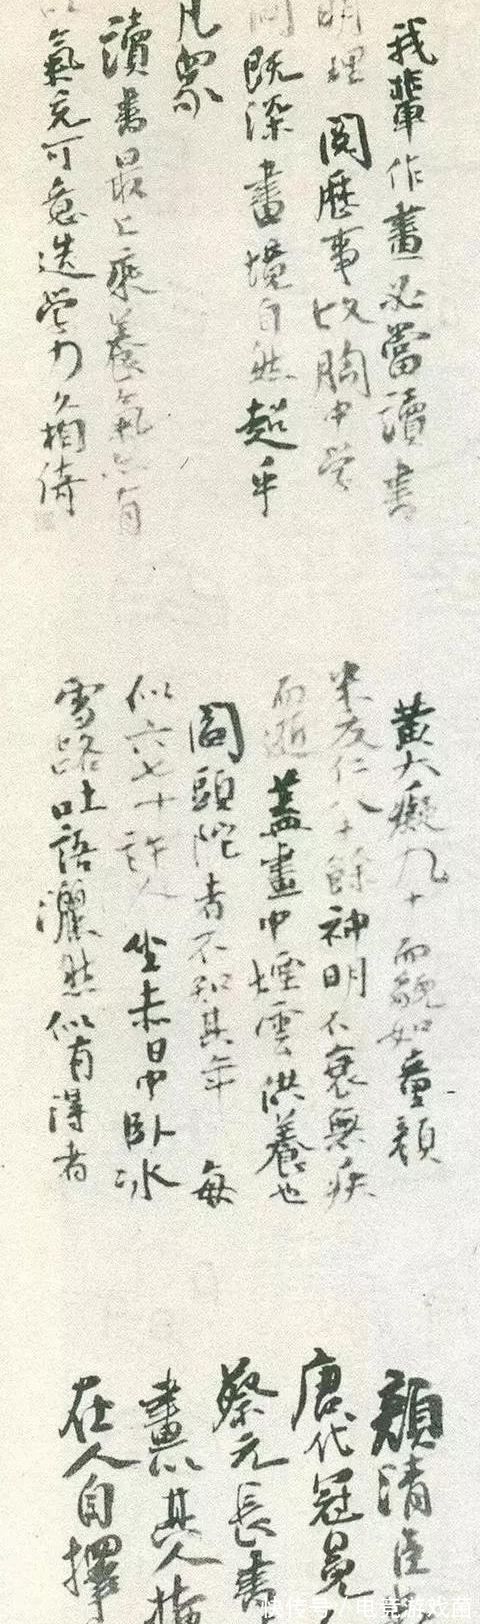 我輩作畫必當讀書
明理 閱歷事故胸中學
問既深畫境自然超乎
凡眾
讀書最上乘養氣亦有
氣充可意造學力久相倚
黃大癡九十而貌如童顏
米友仁八十餘神明不衰無疾
而逝 蓋畫中煙雲洪養也
閻頭陀者不知其年 每
似六七十許人 坐赤日中臥冰
雪路吐語灑然似有得者
顏清臣
唐代冠冕
蔡元長書
畫以其人掩
在人自擇
快传号/电竞游戏菌